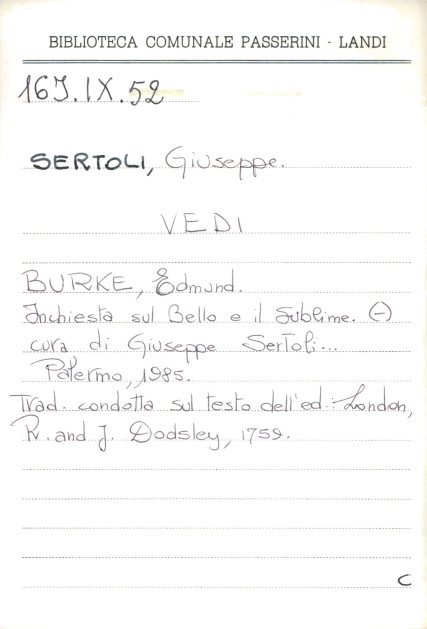 BIBLIOTECA COMUNALE PASSERINI - LANDI
16J.IX.52
SERTOLI, Giuseppe.
VEDI
BURKE, Edmund.
Inchiesta sul Bello e il Sublime. (-)
cura di Giuseppe Sertoli...
Palermo, 1985.
Trad. condotta sul testo dell'ed.: London,
R. and J. Dodsley, 1759.
C